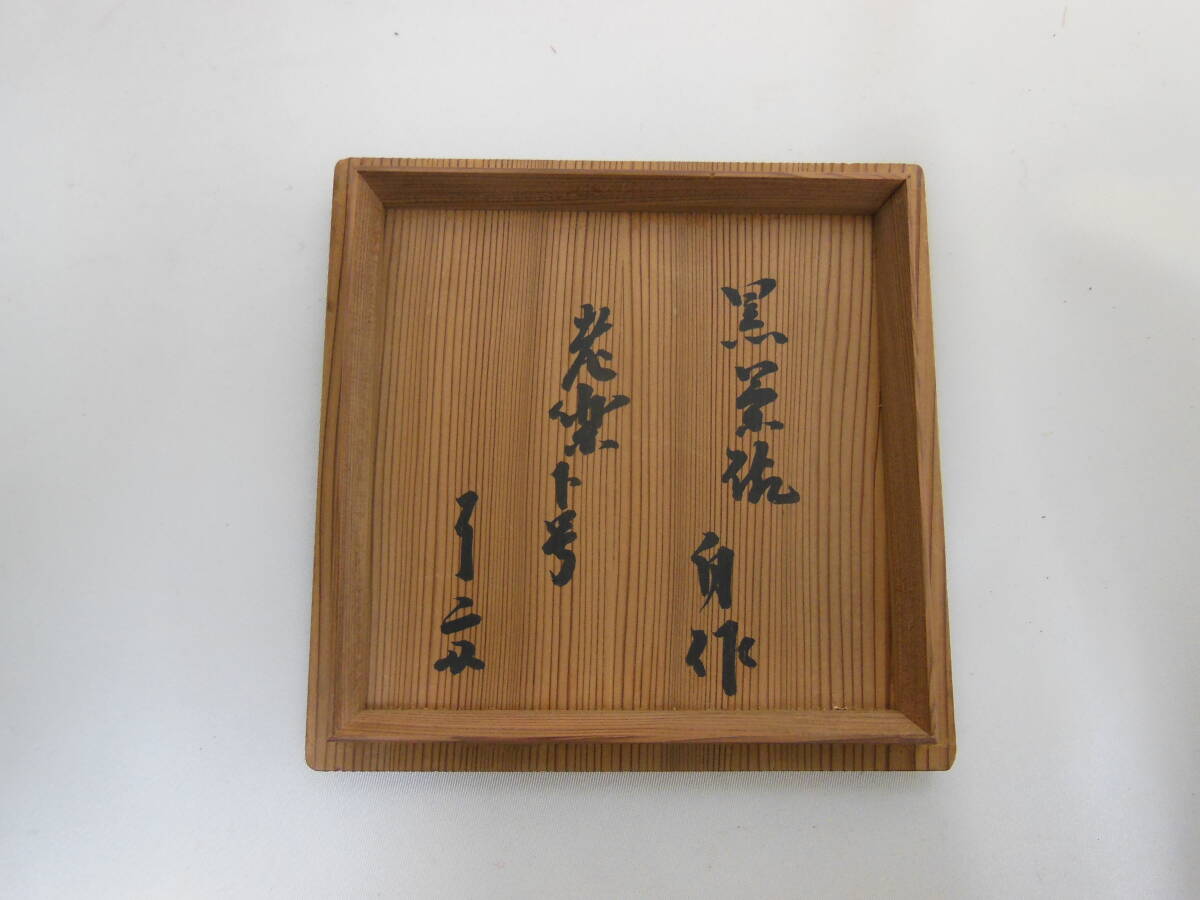 黒茶碗 自作
老楽ト号